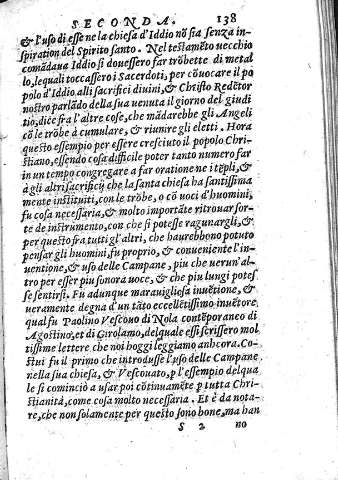 SECONDA. 138
& l'uso di esse ne la chiesa d'Iddio nõ sia senza in-
spiration del Spirito santo. Nel testamẽto vecchio
comãdava Iddio si douessero far trõbette di metal
lo, le quali toccassero i Sacerdoti, per cõuocare il po
polo d'Iddio alli sacrifici diuini, & Christo Redẽtor
nostro parlãdo della sua uenuta il giorno del giudi
tio, dice fra l'altre cose, che mãdarebbe gli Angeli
cõ le trõbe à cumulare, & riunire gli eletti. Hora
questo essempio per essere cresciuto il popolo Chri-
stiano, essendo cosa difficile poter tanto numero far
in un tempo congregare a far oratione ne i tẽpli, &
à gli altri sacrificij che la santa chiesa ha santissima
mente instituiti, con le trõbe, o cõ uoci d'huomini,
fu cosa necessaria, & molto importãte ritrouar sor-
te de instrumento, con che si potesse ragunargli, &
per questo fra tutti gl'altri, che haurebbono potuto
pensar gli huomini, fu proprio, & conueniente l'in-
uentione, & uso delle Campane, piu che uerun'al-
tro per esser piu sonora uoce, & che piu lungi potes
se sentirsi. Fu adunque marauigliosa inuẽtione, &
ueramente degna d'un tãto eccellẽtissimo inuẽtore,
qual fu Paolino Vescouo di Nola contẽporaneo di
Agostino, et di Girolamo, del quale essi scrissero mol
tissime lettere che noi hoggi leggiamo anhcora. Co-
stui fu il primo che introdusse l'uso delle Campane
nella sua chiesa, & Vescouato, p l'essempio del qua
le si cominciò a usar poi cõtinuamẽte p tutta Chri-
stianità, come cosa molto necessaria. Et è da nota-
re, che non solamente per questo sono bone, ma han
S 2 no